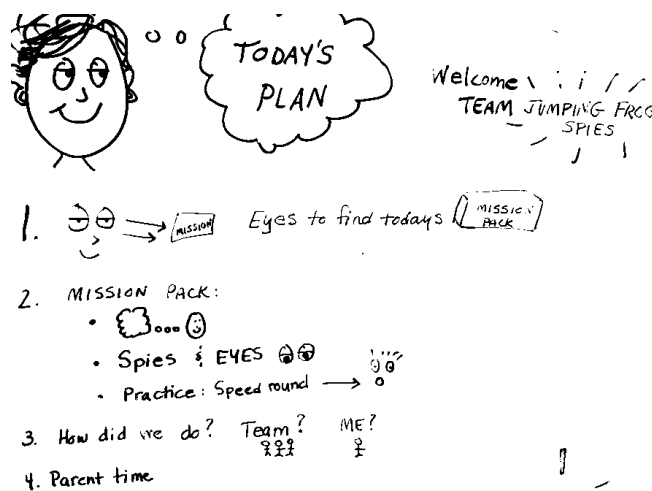 TODAY'S
PLAN
Welcome
TEAM JUMPING FROG
SPIES
1. MISSION Eyes to find todays MISSION
PACK
2. MISSION PACK:
• Spies & EYES
• Practice: Speed round
3. How did we do? Team? ME?
4. Parent time